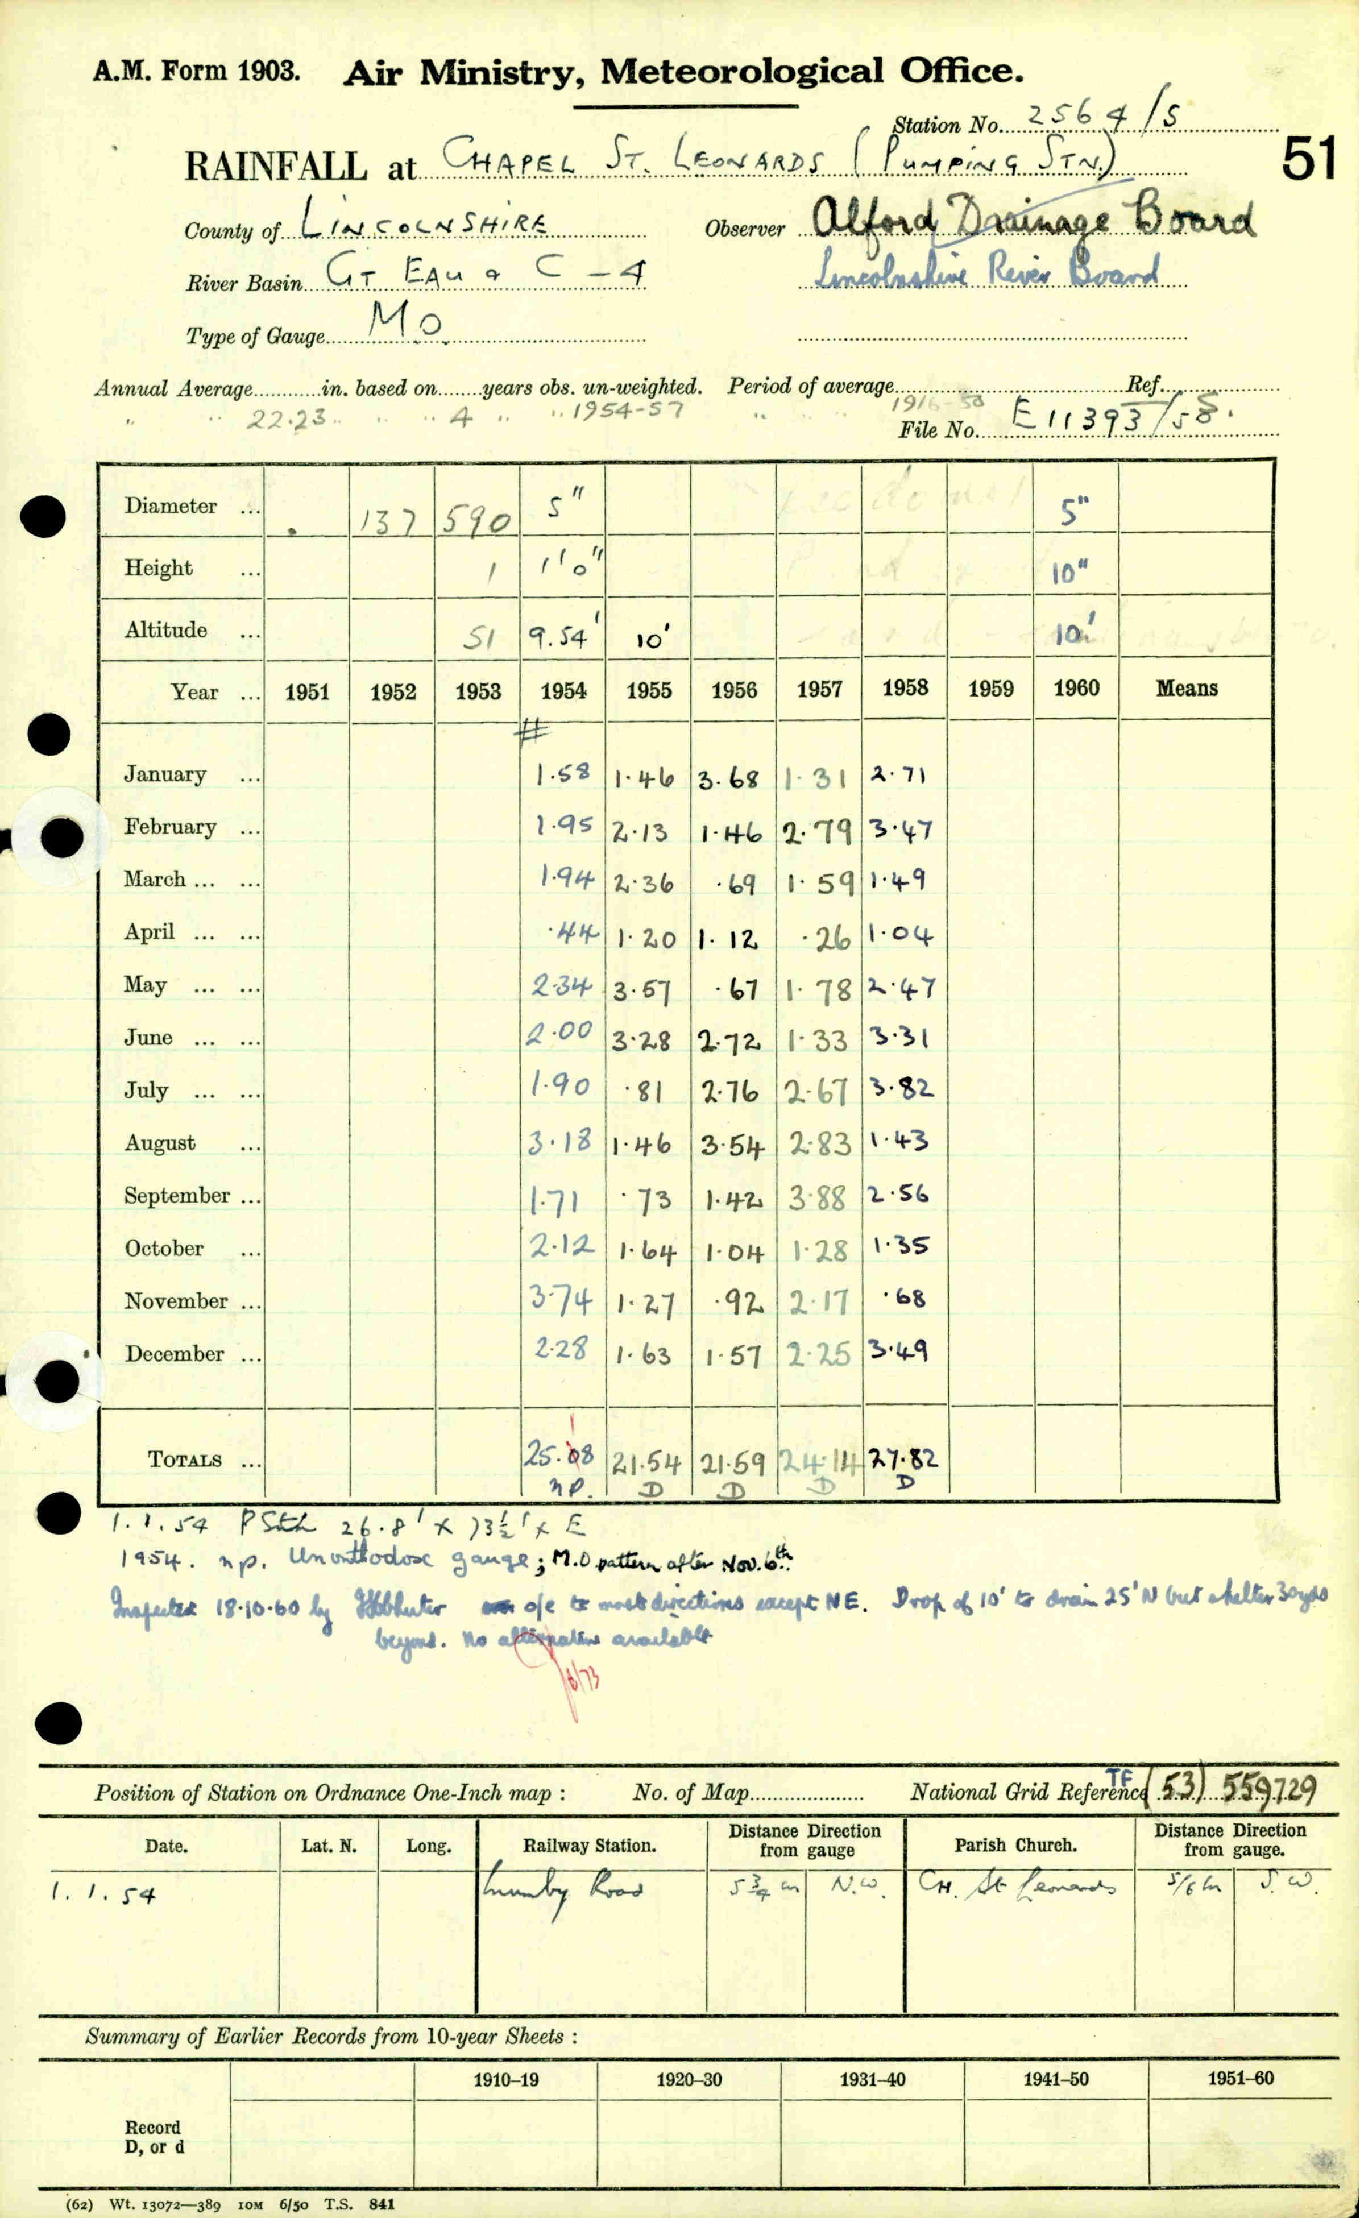 A.M. Form 1903. Air Ministry, Meteorological Office.
Station No. 2564/5
RAINFALL at CHAPEL ST. LEONARDS (PUMPING STN.) 51
County of LINCOLNSHIRE Observer Alford Drainage Board
River Basin GT EAU & C - 4 Lincolnshire River Board
Type of Gauge MO.
Annual Average in. based on years obs. un-weighted. Period of average Ref.
" " 22.23 " " 4 " " 1954-57 " " " 1916-50
File No. E 11393/58
Diameter ... . 137 590 5" 5"
Height ... 1 1'0" 10"
Altitude ... 51 9.54' 10' 10'
Year ... 1951 1952 1953 1954 1955 1956 1957 1958 1959 1960 Means
#
January ... 1.58 1.46 3.68 1.31 2.71
February ... 1.95 2.13 1.46 2.79 3.47
March ... ... 1.94 2.36 .69 1.59 1.49
April ... ... .44 1.20 1.12 .26 1.04
May ... ... 2.34 3.57 .67 1.78 2.47
June ... ... 2.00 3.28 2.72 1.33 3.31
July ... ... 1.90 .81 2.76 2.67 3.82
August ... 3.18 1.46 3.54 2.83 1.43
September ... 1.71 .73 1.42 3.88 2.56
October ... 2.12 1.64 1.04 1.28 1.35
November ... 3.74 1.27 .92 2.17 .68
December ... 2.28 1.63 1.57 2.25 3.49
TOTALS ... 25.08 21.54 21.59 24.14 27.82
np. D D D D
1.1.54 P Sth 26.8' x 73½' x E
1954. np. Unorthodox gauge; M.O pattern after Nov. 6th.
Inspected 18.10.60 by o/e to most directions except NE. Drop of 10' to drain 25' N but shelter 30yds
beyond. No alternative available
6/73
Position of Station on Ordnance One-Inch map : No. of Map National Grid Reference TF (53) 559729
Date. Lat. N. Long. Railway Station. Distance from gauge Direction Parish Church. Distance from gauge. Direction
1.1.54 Mumby Road 5¾ m N.W. CH. St Leonards 5/6 m S.W.
Summary of Earlier Records from 10-year Sheets :
1910–19 1920–30 1931–40 1941–50 1951–60
Record
D, or d
(62) Wt. 13072—389 10M 6/50 T.S. 841